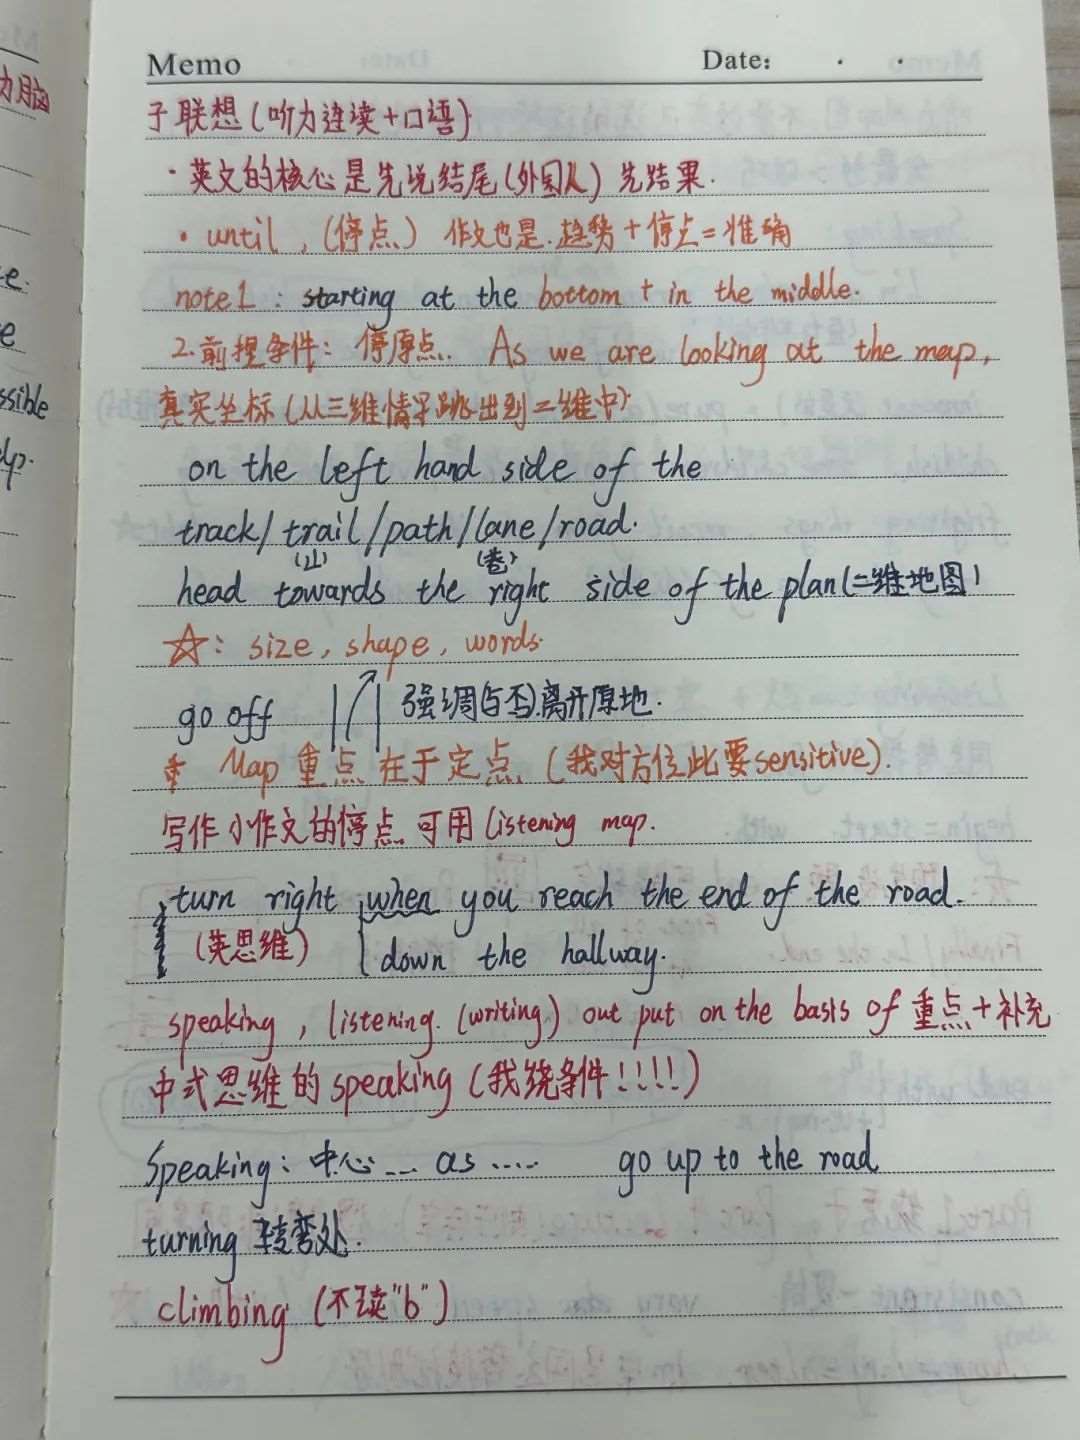 Memo Date:
子联想(听力连读+口语)
·英文的核心是先说结尾(外国人)先结果.
·until,(停点) 作文也是.趋势+停点=准确
note1: starting at the bottom + in the middle.
2.前提条件: 停原点. As we are looking at the map,
真实坐标(从三维情景跳出到二维中)
on the left hand side of the
track/trail/path/lane/road.
(山) (巷)
head towards the right side of the plan(二维地图)
☆: size, shape, words.
go off 强调(与否)离开原地.
Map 重点在于定点 (我对方位此要sensitive).
写作小作文的停点可用listening map.
turn right when you reach the end of the road.
(英思维) down the hallway.
speaking, listening.(writing) out put on the basis of 重点+补充
中式思维的speaking(我绕条件!!!!)
Speaking: 中心... as ..... go up to the road
turning 转弯处.
climbing (不读"b")
力脑
e.
e
ssible